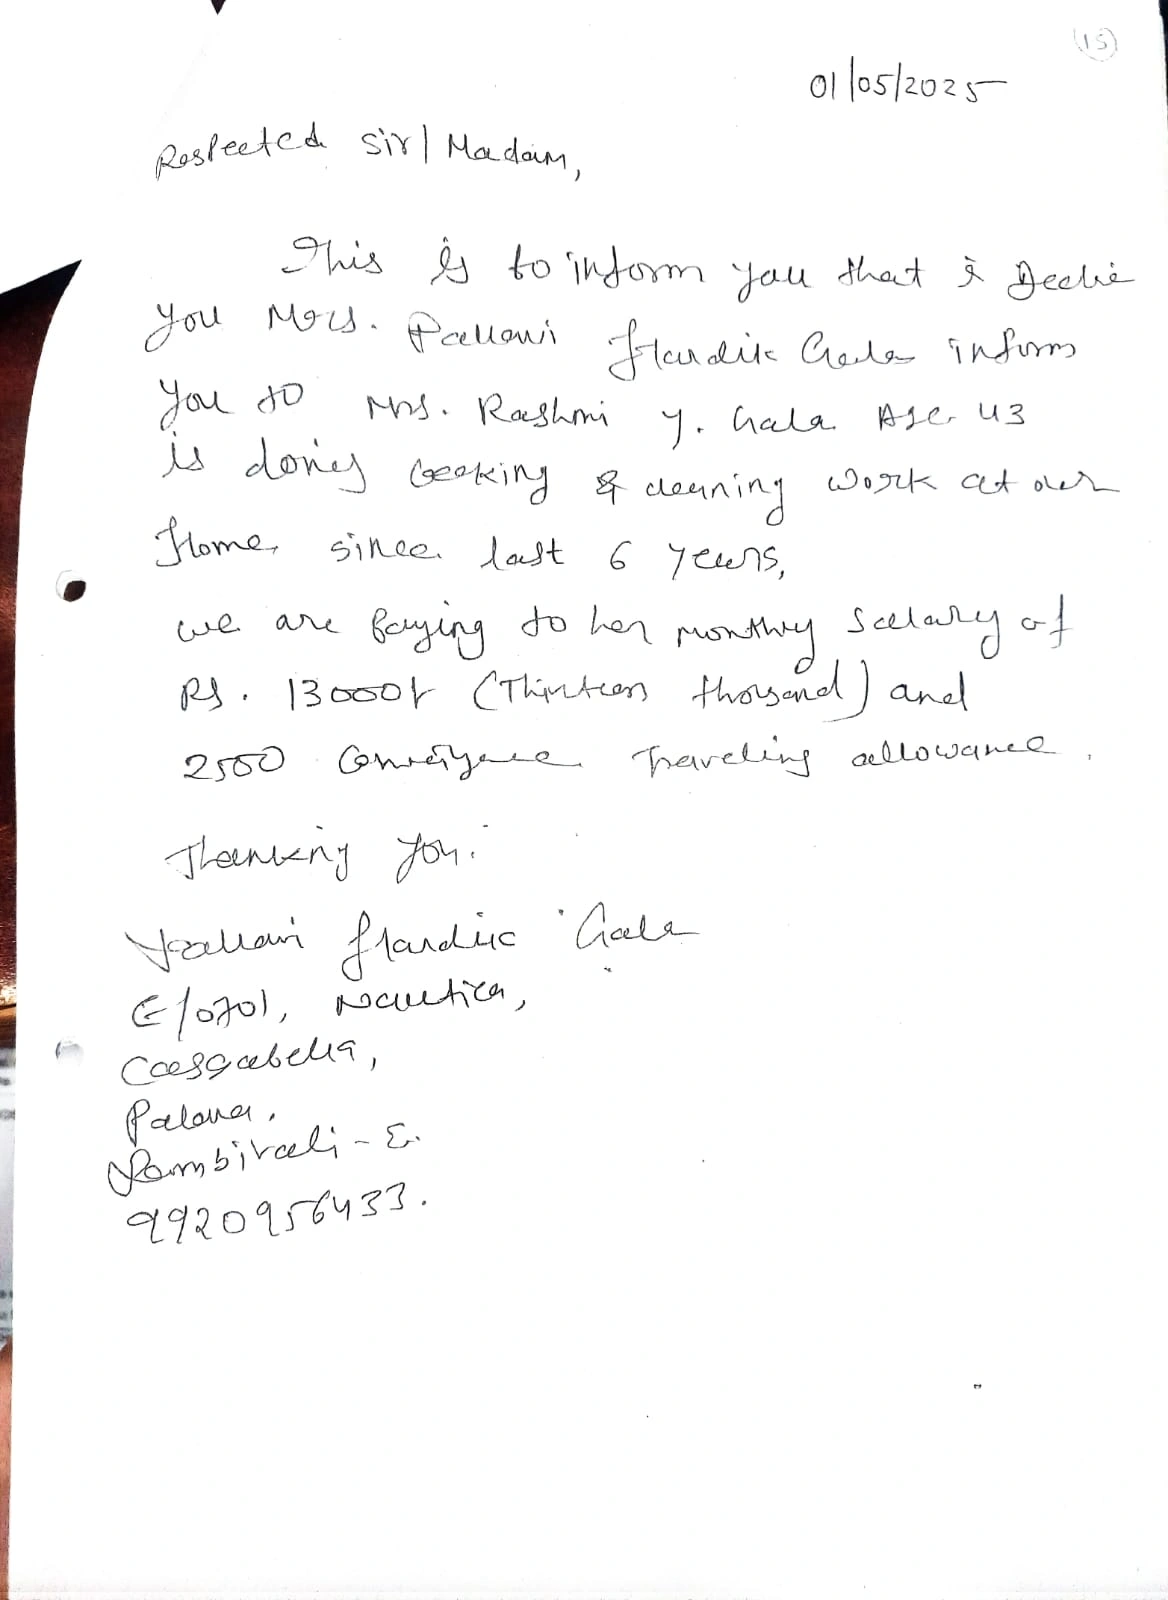 15
01/05/2025
Respected Sir/Madam,
This is to inform you that i
you Mrs. Pallavi Hardik Gala inform
you to Mrs. Rashmi Y. Gala Age 43
is doing cooking & cleaning work at our
Home, since last 6 years,
we are paying to her monthly salary of
Rs. 13000/- (Thirteen thousand) and
2500 Conveyance Traveling allowance.
Thanking You.
Pallavi Hardik Gala
E/0701, Nautica,
Casabella,
Palava,
Dombivali - E.
9920956433.